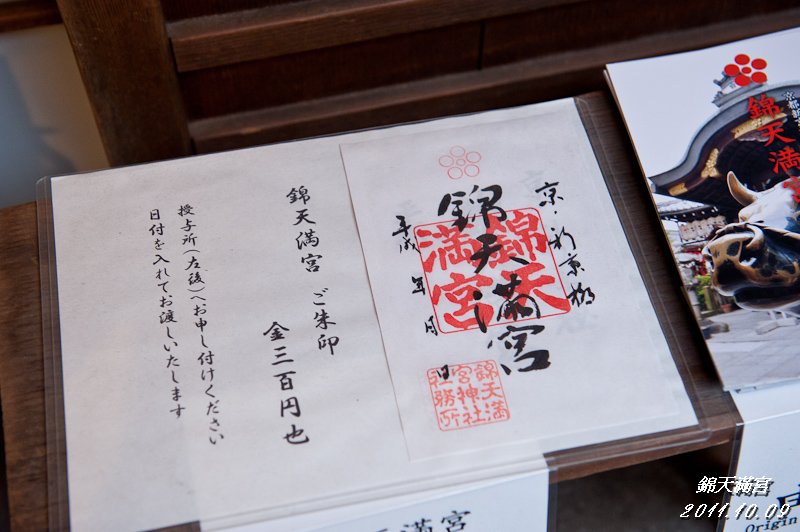 京・新京極
錦天満宮
平成 年 月 日
錦天
満宮
錦天満
宮神社
社務所
錦天満宮 ご朱印
金三百円也
授与所(左後)へお申し付けください
日付を入れてお渡しいたします
京都
錦天満宮
天満宮
origin
錦天滿宮
2011.10.09